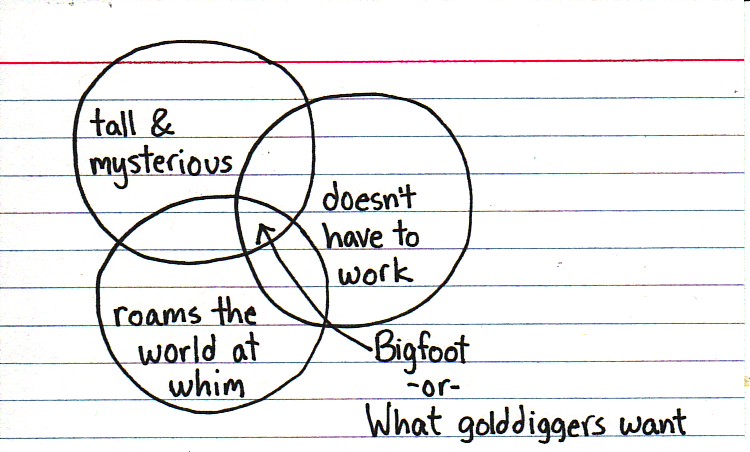 tall &
mysterious
doesn't
have to
work
roams the
world at
whim
Bigfoot
-or-
What golddiggers want